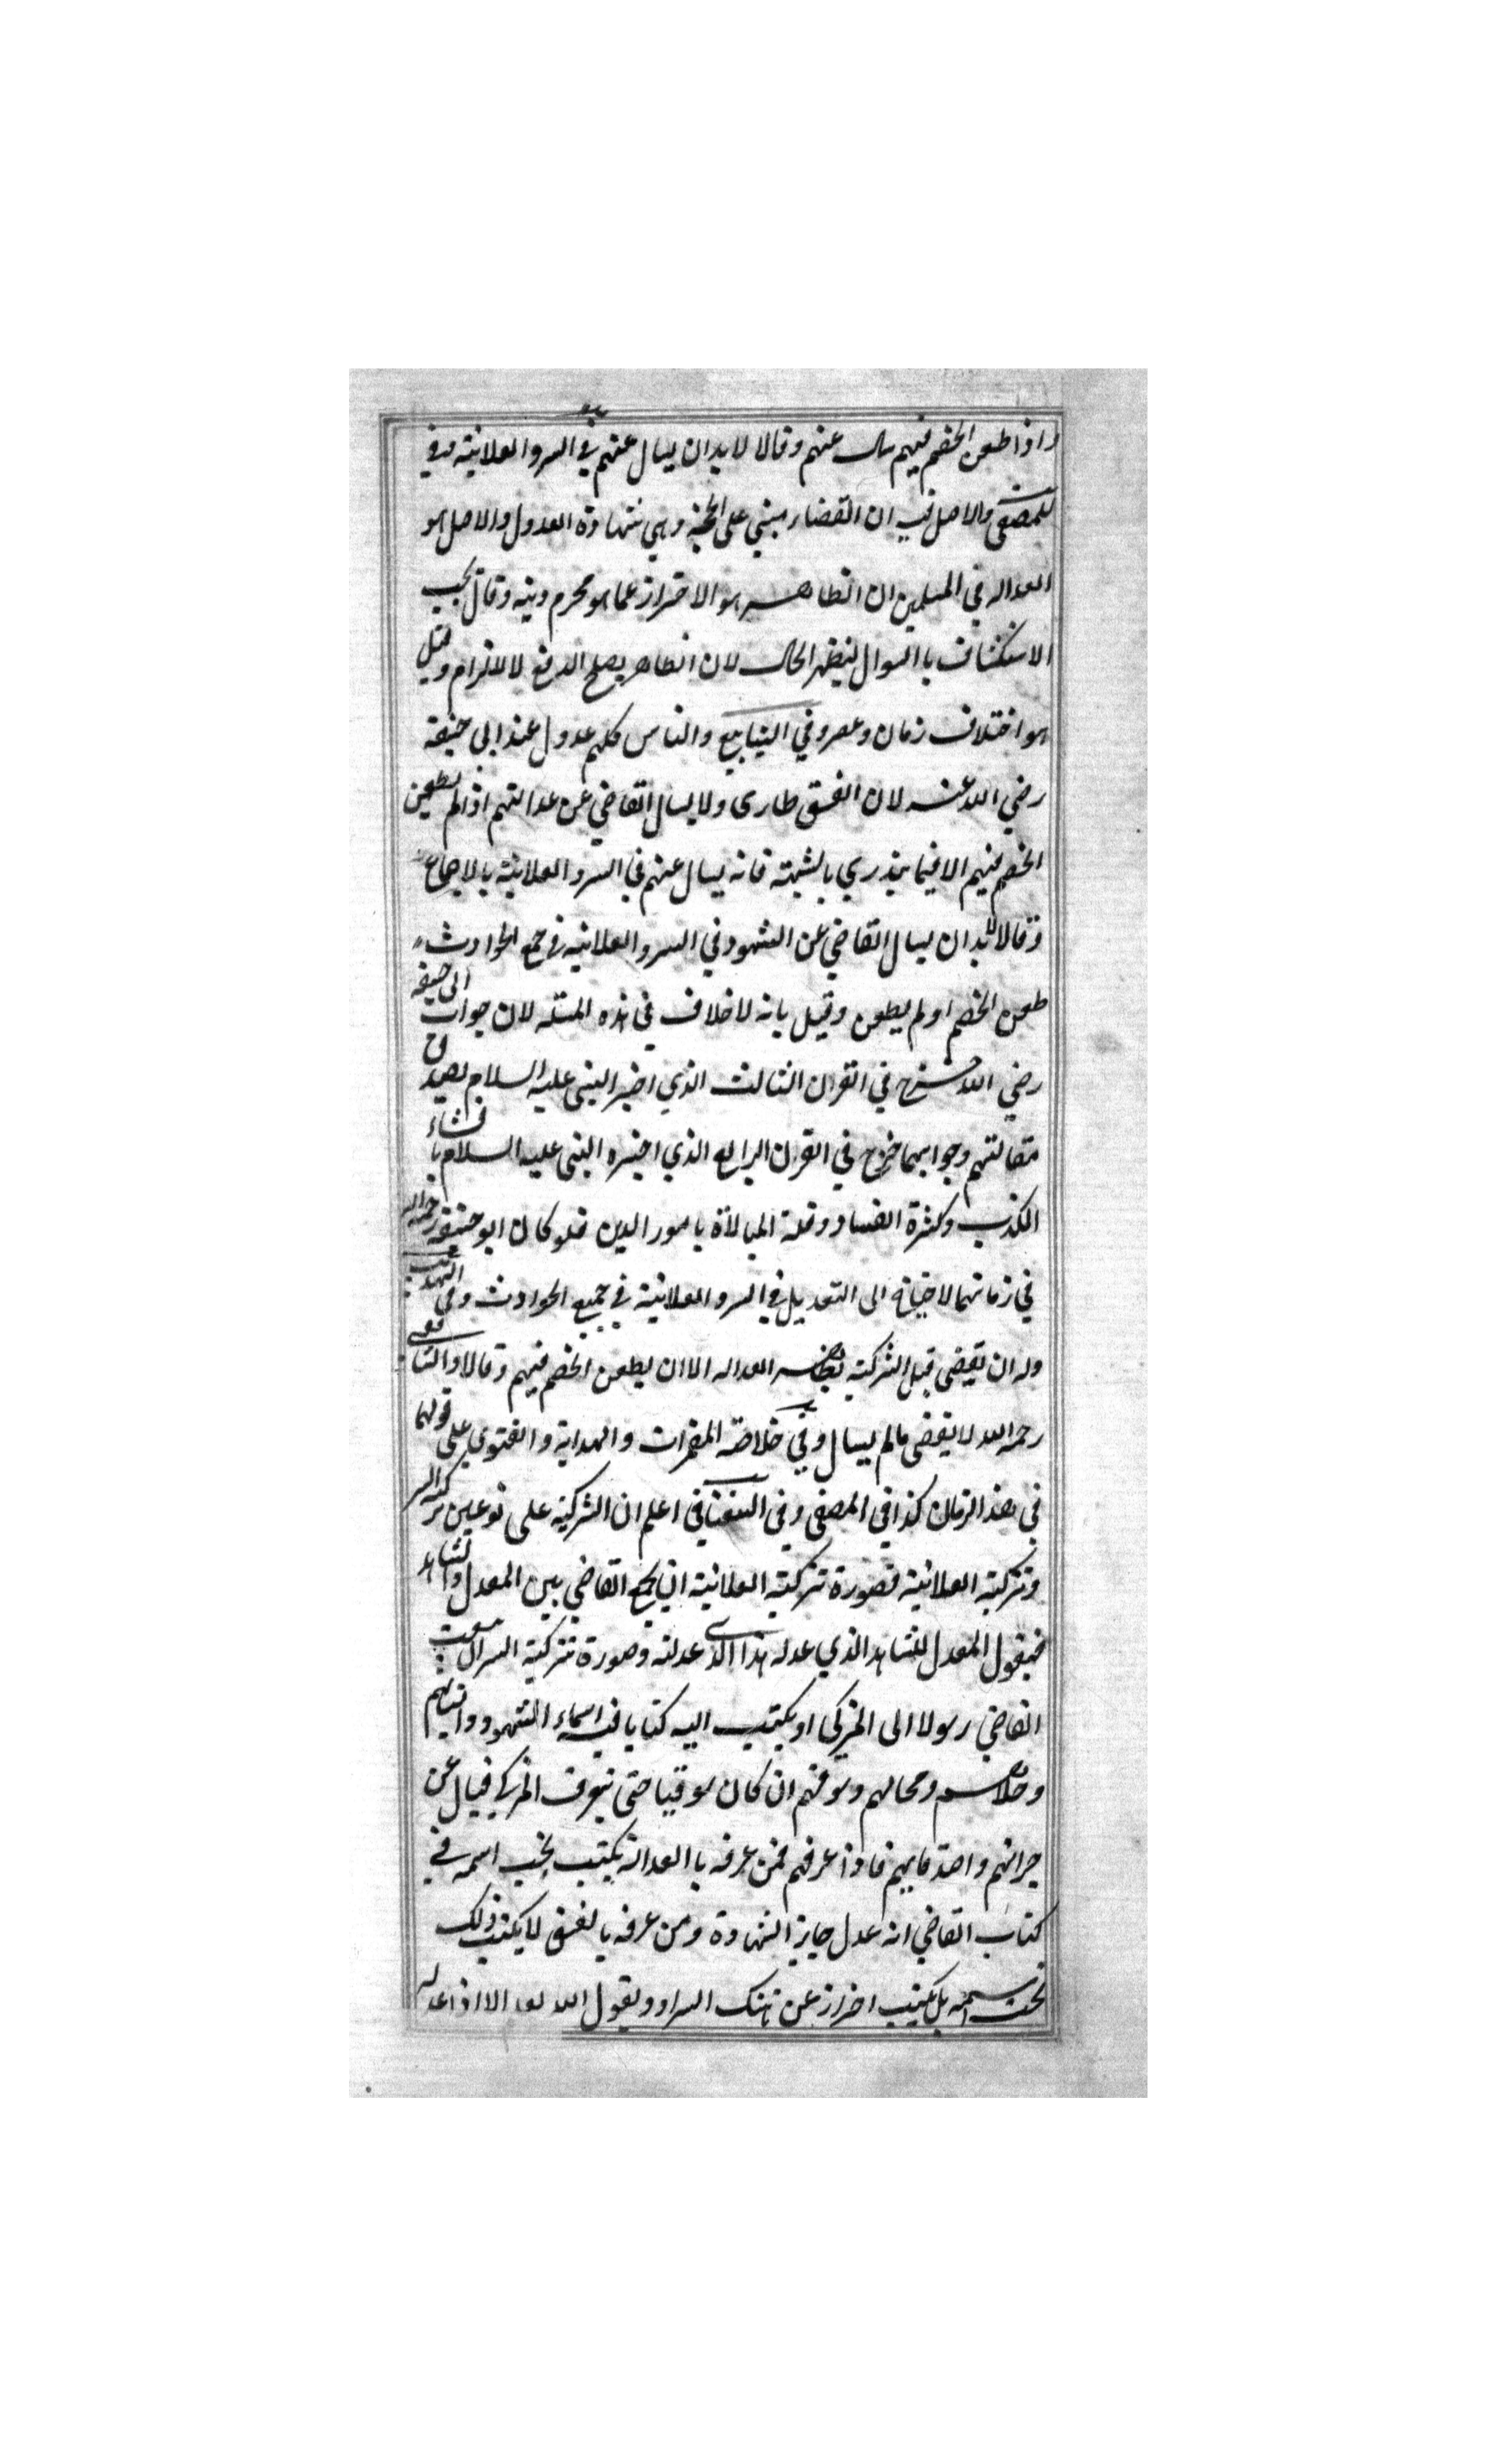 واذا طعن الخصم فيهم سال عنهم وقالا لا بد ان يسال عنهم في السر والعلانية وفي
المصفى والاصل فيه ان القضاء مبني على الحجة وهي شهادة العدول والاصل هو
العدالة في المسلمين ان الظاهر هو الاحتراز عما هو محرم دينه وقال يجب
الاستكشاف باالسوال ليظهر الحال لان الظاهر يصلح الدفع لا لالزام وقيل
هو اختلاف زمان وعصر وفي الينابيع والناس كلهم عدول عند ابي حنيفة
رضي الله عنه لان الفسق طارى ولا يسال القاضي عن عدالتهم اذا لم يطعن
الخصم فيهم الا فيما يندري بالشبهة فانه يسال عنهم في السر والعلانية بالاجماع
وقالا لابد ان يسال القاضي عن الشهود في السر والعلانية في جميع الحوادث
طعن الخصم او لم يطعن وقيل بانه لا خلاف في هذه المسئلة لان جواب ابي حنيفة
رضي الله خرج في القران الثالث الذي اخبر النبي عليه السلام بصدق
مقالتهم وجوابهما خرج في القرن الرابع الذي اخبره النبي عليه السلام بافشاء
الكذب وكثرة الفساد وقلة المبالاة بامور الدين فلو كان ابو حنيفة رحمه الله
في زمانهما لاحتاج الى التعديل في السر والعلانية في جميع الحوادث وفي التهذيب
وله ان يقضي قبل التزكية بظاهر العدالة الا ان يطعن الخصم فيهم وقالا والشافعي
رحمه الله لا يقضى مالم يسال وفي خلاصة المقمرات والهداية والفتوى على قولهما
في هذا الزمان كذا في المصفى وفي السغناقي اعلم ان التزكية على نوعين تزكية السر
وتزكية العلانية فصورة تزكية العلانية ان يجمع القاضي بين المعدل والشاهد
فيقول المعدل للشاهد الذي عدله هذا الذي عدلته وصورة تزكية السر ان يبعث
القاضي رسولا الى المزكي او يكتب اليه كتابا فيه اسماء الشهود وانسابهم
وحلاهم ومحالهم وسوقهم ان كان سوقيا حتى يعرف المزكي فيسال عن
جيرانهم واصدقايهم فاذا عرفهم فمن عرفه باالعدالة يكتب تحت اسمه في
كتاب القاضي انه عدل جايز الشهادة ومن عرفه بالفسق لا يكتب ذلك
تحت اسمه بل يكتب احرازا عن هتك السر او يقول الله يعلم الا اذا عدله